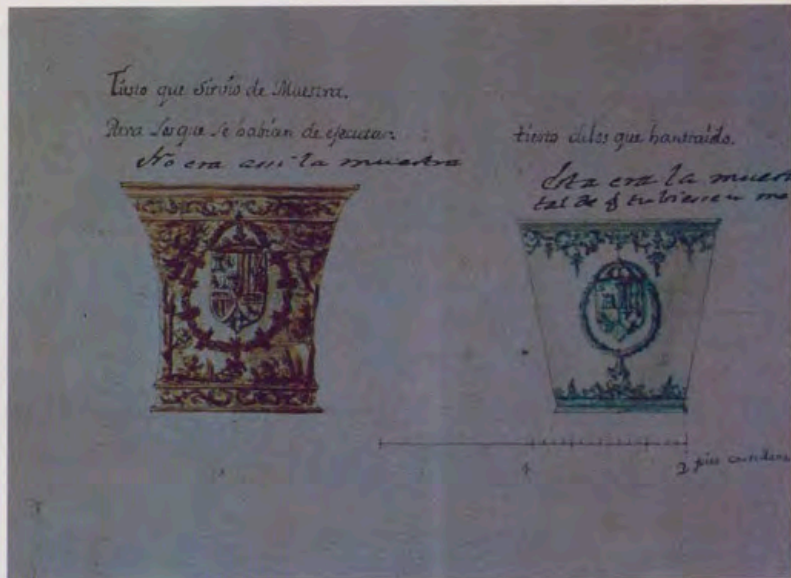 Tiesto que Sirvio de Muestra.
Para Los que se habian de ejecutar.
No era assi la muestra
tiesto de los que han traido.
Esta era la muest
tal de q tubiesen
1
2 pies castellan